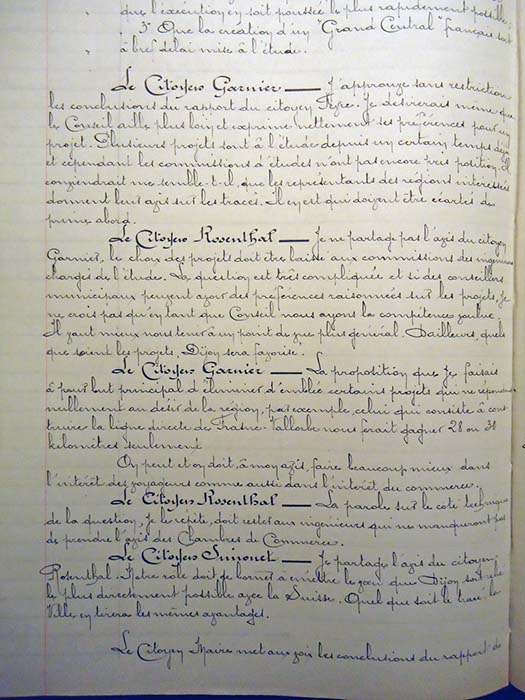 que l'exécution en soit poussée le plus rapidement possible;
3° Que la création d'un "Grand Central" français soit
à bref délai mise à l'étude.
Le Citoyen Garnier — J'approuve sans restriction
les conclusions du rapport du citoyen Peyre. Je désirerais même que
le Conseil aille plus loin et exprime nettement ses préférences pour un
projet. Plusieurs projets sont à l'étude depuis un certain temps déjà
et cependant les commissions d'études n'ont pas encore pris position. Il
conviendrait me semble-t-il, que les représentants des régions intéressées
donnent leur avis sur les tracés. Il en est qui doivent être écartés de
prime abord.
Le Citoyen Rosenthal — Je ne partage pas l'avis du citoyen
Garnier, le choix des projets doit être laissé aux commissions des ingénieurs
chargés de l'étude. La question est très compliquée et si des conseillers
municipaux peuvent avoir des préférences raisonnées sur les projets, je
ne crois pas qu'en tant que Conseil nous ayons la compétence voulue.
Il vaut mieux nous tenir à un point de vue plus général. D'ailleurs, quels
que soient les projets, Dijon sera favorisé.
Le Citoyen Garnier — La proposition que je faisais
a pour but principal d'éliminer d'emblée certains projets qui ne répondent
nullement au désir de la région, par exemple, celui qui consiste à cons-
truire la ligne directe de Frasne-Vallorbe nous ferait gagner 28 ou 30
kilomètres seulement
On peut et on doit, à mon avis, faire beaucoup mieux dans
l'intérêt des voyageurs comme aussi dans l'intérêt du commerce.
Le Citoyen Rosenthal — La parole sur le côté technique
de la question, je le répète, doit rester aux ingénieurs qui ne manqueront pas
de prendre l'avis des Chambres de Commerce.
Le Citoyen Simonet — Je partage l'avis du citoyen
Rosenthal. Notre rôle doit se borner à émettre le vœu que Dijon soit relié
le plus directement possible avec la Suisse. Quel que soit le tracé la
Ville en tirera les mêmes avantages.
Le Citoyen Maire met aux voix les conclusions du rapport de